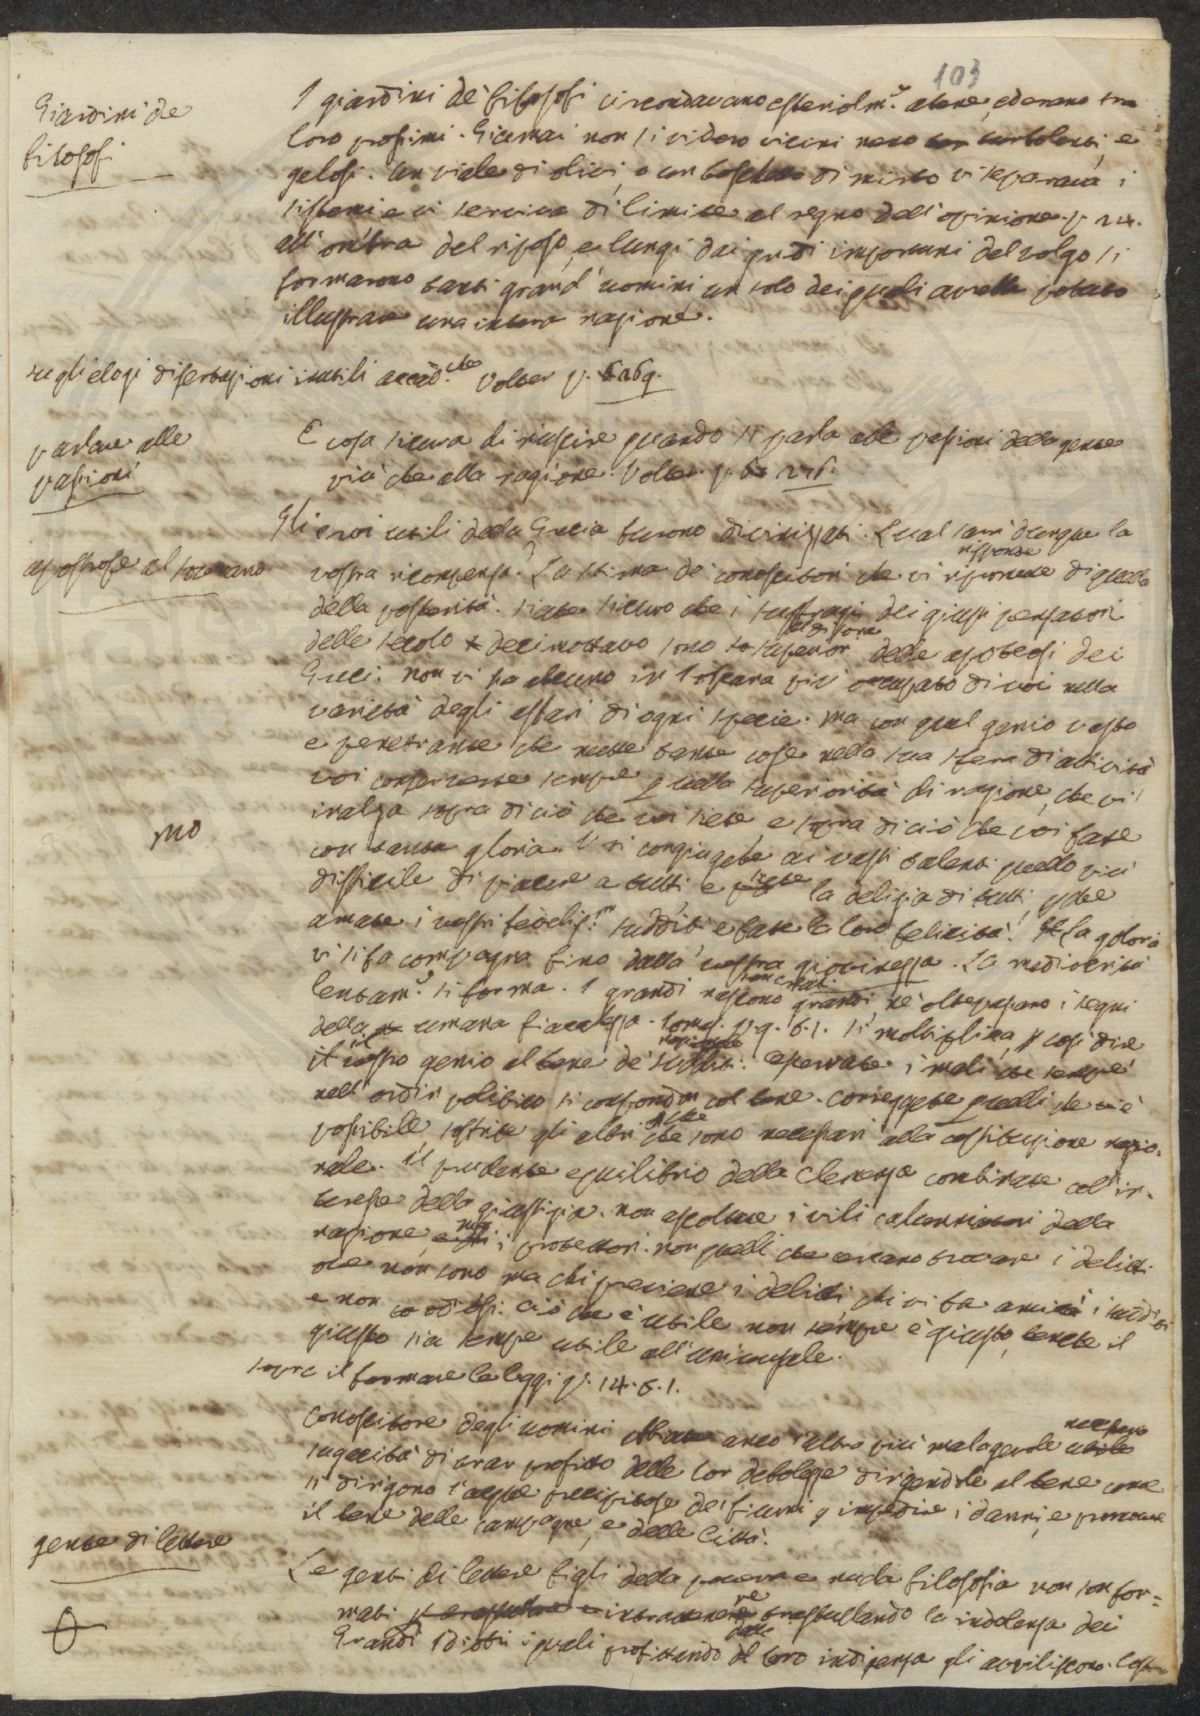 103
Giardini de
filosofi
I giardini de' filosofi circondavano esteriolm.e Atene, ed erano tra
loro prossimi. Giammai non si videro vicini meno turbolenti, e
gelosi. Un viale di olivi, o un boschetto di mirto vi separava i
sistemi e vi serviva di limite al regno dell'opinione. p. 24.
all'ombra del riposo, e lungi dai gridi importuni del volgo si
formarono tanti grand'uomini, un solo dei quali avrebbe potuto
illustrare una intera nazione.
sugli elogi dissertazioni inutili accad.che Volter p. 269.
parlare alle
passioni
È cosa sicura di riuscire quando si parla alle passioni della gente
più che alla ragione. Volter p. 276.
apostrofe al sovrano
Gli eroi utili della Grecia furono divinizzati. Qual sarà dunque la
vostra ricompensa. La stima de' conoscitori che vi risponde di quella
della posterità. siate sicuro che i suffragi dei giusti pensatori
delle secolo decimottavo sono al di sopra delle apoteosi dei
Greci. non vi ha alcuno in Toscana più occupato di voi nella
varietà degli affari di ogni specie. ma con quel genio vasto
e penetrante che mette tante cose nella sua sfera di attività
voi conservaste sempre quella superiorità di ragione, che vi
inalza sopra di ciò che voi siete, e sopra di ciò che voi fate
mo
con tanta gloria. Voi congiugete ai vasti talenti quello più
difficile di piacere a tutti e siete la delizia di tutti,
amate i vostri fedeliss.mi sudditi e fate la loro felicità. La gloria
vi si fa compagna fino dalla vostra giovinezza. La mediocrità
lentam.e si forma. I grandi nascono grandi nè oltrepassano i segni
della umana fiacchezza. Tomas. p. 9. t. 1. Si moltiplica, p così dire
il vostro genio al bene de' sudditi. Osservate i mali che sempre
nell'ordin politico si confondon col bene. correggete quelli che è
possibile, soffrite gli altri che sono necessari alla costituzione nazio=
nale. il prudente equilibrio della clemenza combinate coll'in=
teresse della giustizia. non ascoltate i vili calunniatori della
nazione, ma i protettori. non quelli che cercano trovare i delitti
ove non sono ma chi previene i delitti, chi vi fa amici i sudditi
e non odiosi. Ciò che è utile non sempre è giusto, benchè il
giusto sia sempre utile all'universale.
sopra il formare le leggi p. 14. t. 1.
Conoscitore degli uomini abbiate anco l'altra più malagevole necessaria
sagacità di trar profitto delle lor debolezze dirigendole al bene come
si dirigono l'acque precipitose dei fiumi p impedire i danni, e promovere
il bene delle campagne, e delle Città.
gente di lettere
Le genti di lettere figli della povera e nuda filosofia non son for=
mati p intrattenere trastullando la indolenza dei
Grandi Idioti i quali profittando della loro indigenza gli avviliscono.